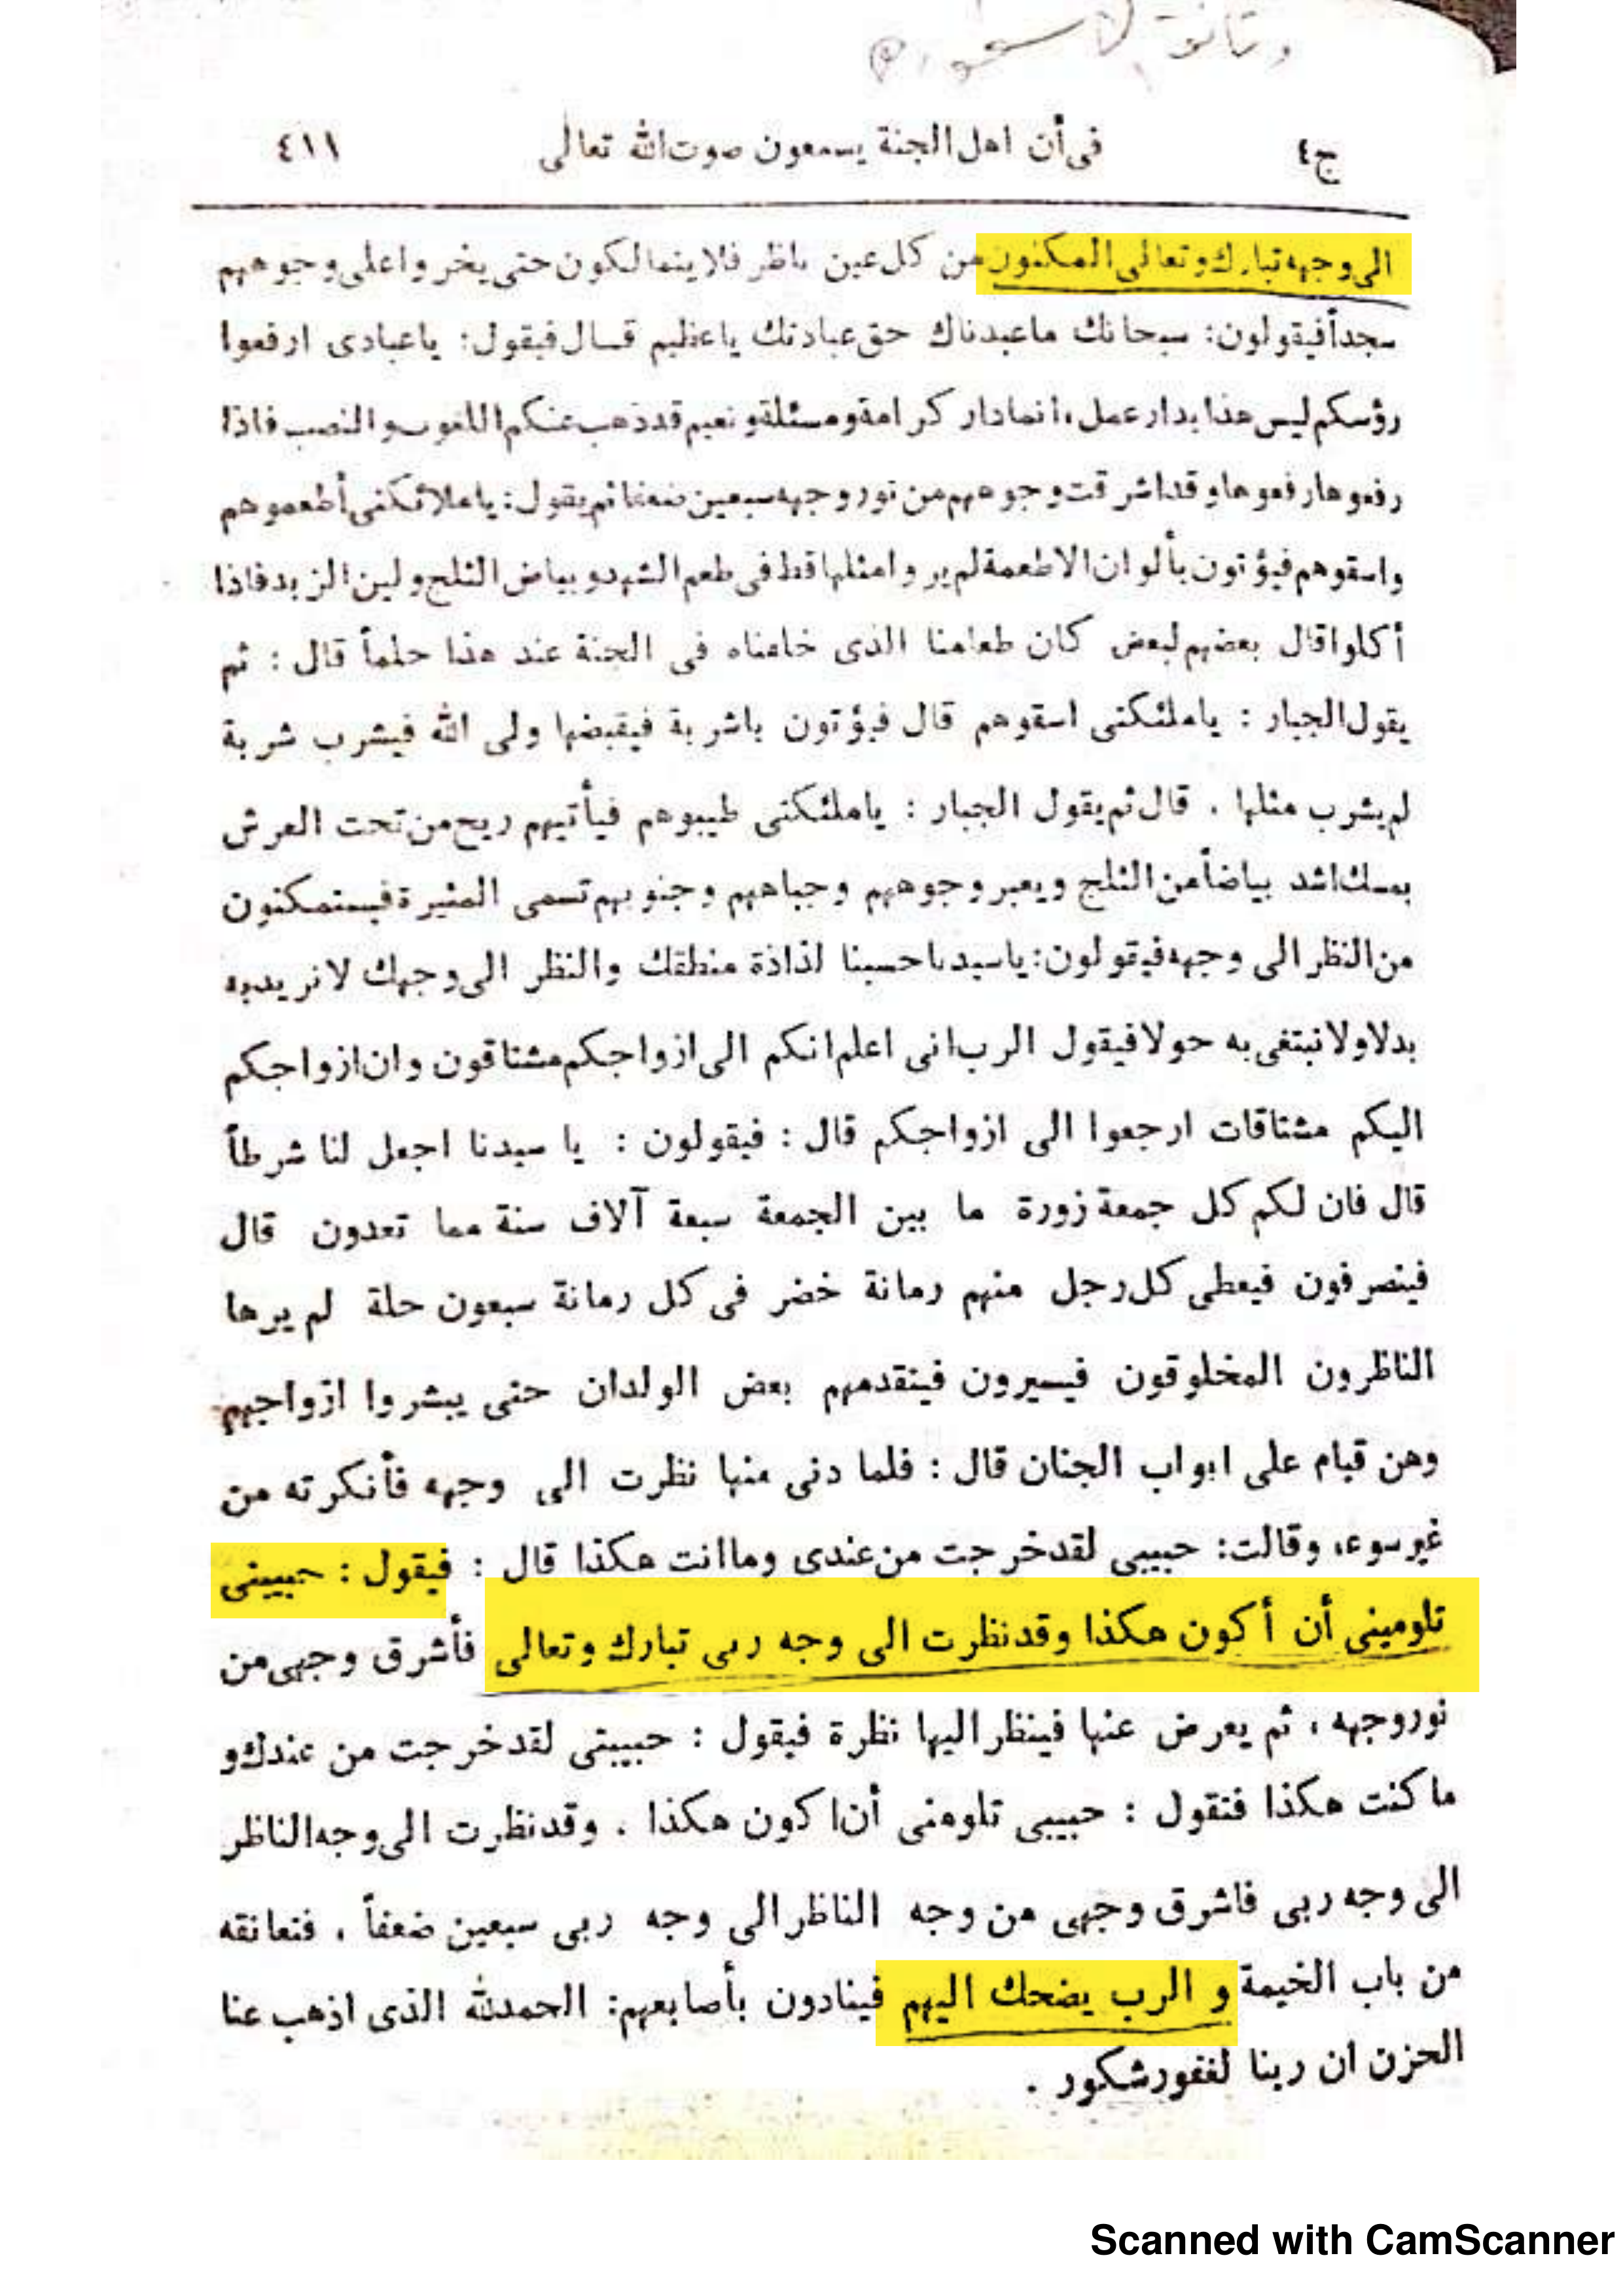 ج٤ فى أن اهل الجنة يسمعون صوت الله تعالى ٤١١
الى وجهه تبارك وتعالى المكنون من كل عين ناظر فلا يتمالكون حتى يخروا على وجوههم
سجداً فيقولون: سبحانك ماعبدناك حق عبادتك ياعظيم قال فيقول: ياعبادى ارفعوا
رؤسكم ليس هذا بدار عمل، انما دار كرامة ومسئلة ونعيم قد ذهب عنكم اللغوب والنصب فاذا
رفعوها رفعوها وقد اشرقت وجوههم من نور وجهه سبعين ضعفا ثم يقول: ياملائكتى أطعموهم
واسقوهم فيؤتون بألوان الاطعمة لم يروا مثلها قط فى طعم الشهد و بياض الثلج ولين الزبد فاذا
أكلوا قال بعضهم لبعض كان طعامنا الذى خلفناه فى الجنة عند هذا حلماً قال : ثم
يقول الجبار : ياملئكتى اسقوهم قال فيؤتون باشربة فيقبضها ولى الله فيشرب شربة
لم يشرب مثلها . قال ثم يقول الجبار : ياملئكتى طيبوهم فيأتيهم ريح من تحت العرش
بمسك اشد بياضاً من الثلج ويعبر وجوههم وجباههم وجنوبهم تسمى المثيرة فيستمكنون
من النظر الى وجهه فيقولون: ياسيدنا حسبنا لذاذة منطقك والنظر الى وجهك لانريد به
بدلا ولا نبتغى به حولا فيقول الرب انى اعلم انكم الى ازواجكم مشتاقون وان ازواجكم
اليكم مشتاقات ارجعوا الى ازواجكم قال : فيقولون : يا سيدنا اجعل لنا شرطاً
قال فان لكم كل جمعة زورة ما بين الجمعة سبعة آلاف سنة مما تعدون قال
فينصرفون فيعطى كل رجل منهم رمانة خضر فى كل رمانة سبعون حلة لم يرها
الناظرون المخلوقون فيسيرون فيتقدمهم بعض الولدان حتى يبشروا ازواجهم
وهن قيام على ابواب الجنان قال : فلما دنى منها نظرت الى وجهه فأنكرته من
غير سوء، وقالت: حبيبى لقد خرجت من عندى وما انت هكذا قال : فيقول : حبيبتى
تلومينى أن أكون هكذا وقد نظرت الى وجه ربى تبارك وتعالى فأشرق وجهى من
نور وجهه ، ثم يعرض عنها فينظر اليها نظرة فيقول : حبيبتى لقد خرجت من عندك و
ما كنت هكذا فتقول : حبيبى تلومنى أن اكون هكذا . وقد نظرت الى وجه الناظر
الى وجه ربى فاشرق وجهى من وجه الناظر الى وجه ربى سبعين ضعفاً . فتعانقه
من باب الخيمة و الرب يضحك اليهم فينادون بأصابعهم: الحمدلله الذى اذهب عنا
الحزن ان ربنا لغفور شكور .
Scanned with CamScanner